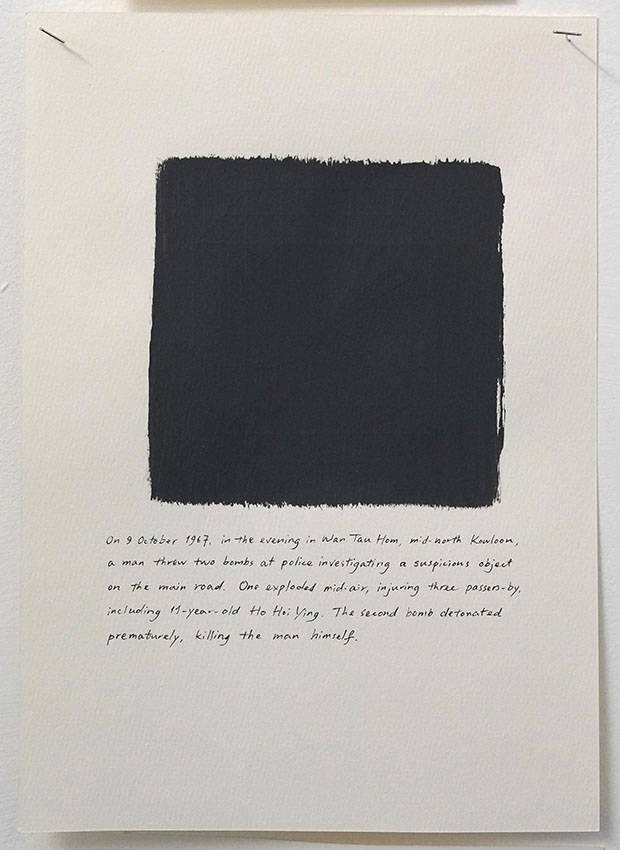 On 9 October 1967, in the evening in Wan Tau Hom, mid-north Kowloon,
a man threw two bombs at police investigating a suspicious object
on the main road. One exploded mid-air, injuring three passers-by,
including 11-year-old Ho Hoi Ying. The second bomb detonated
prematurely, killing the man himself.